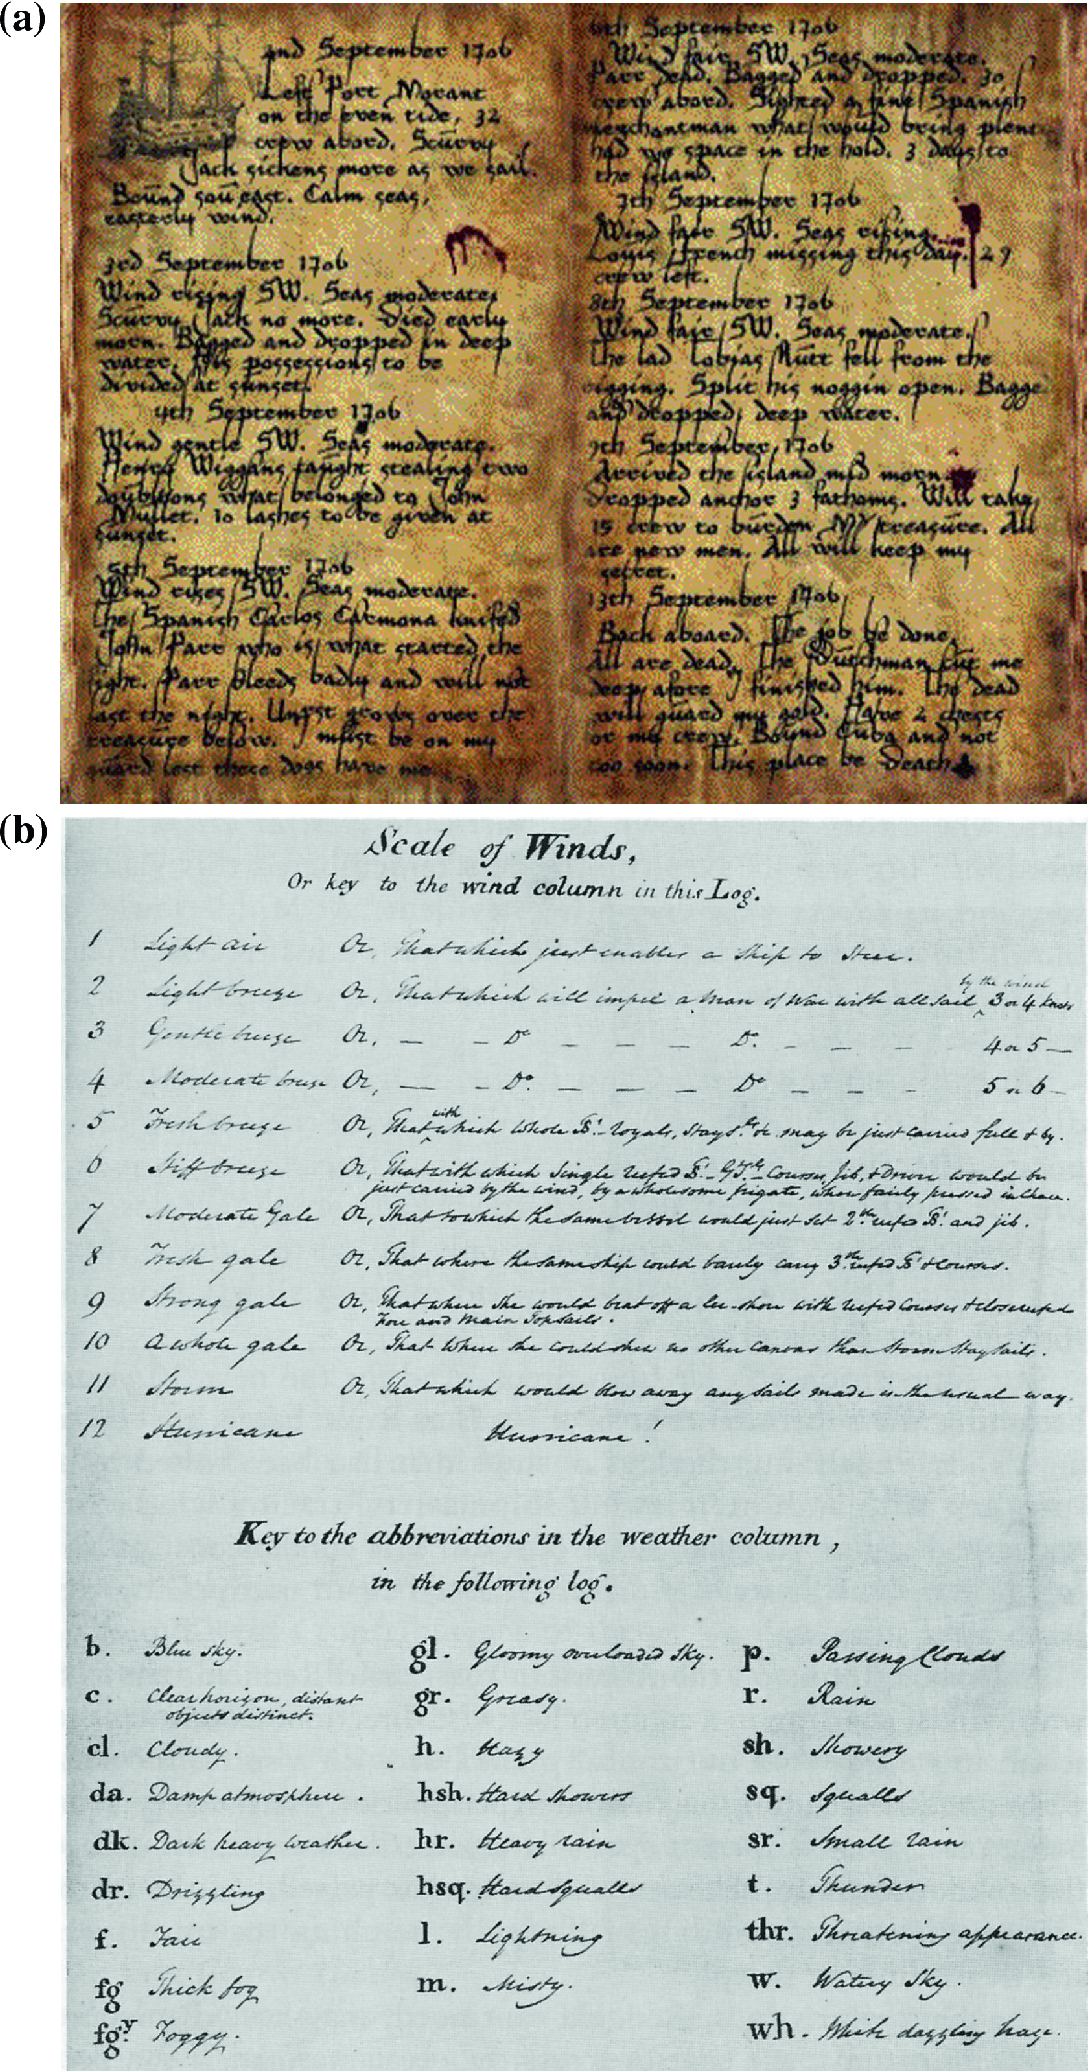 (a)
2nd September 1706
Left Port Morant
on the even tide, 32
crew abord. Scurvy
Jack sickens more as we sail.
Bound sou east. Calm seas,
easterly wind.
3rd September 1706
Wind rising SW. Seas moderate,
Scurvy Jack no more. Died early
morn. Bagged and dropped in deep
water. His possessions to be
divided at sunset.
4th September 1706
Wind gentle SW. Seas moderate.
Henry Wiggans caught stealing two
doubloons what belonged to John
Mullet. 10 lashes to be given at
sunset.
5th September 1706
Wind rises SW. Seas moderate.
The Spanish Carlos Carmona knifed
John Parr who is what started the
fight. Parr bleeds badly and will not
last the night. Unrest grows over the
treasure below. I must be on my
guard lest these dogs have me
6th September 1706
Wind fair SW. Seas moderate.
Parr dead. Bagged and dropped. 30
crew abord. Sighted a fine Spanish
merchantman what would bring plent
had we space in the hold. 3 days to
the island.
7th September 1706
Wind fair SW. Seas rising.
Louis French missing this day. 29
crew left.
8th September 1706
Wind fair SW. Seas moderate.
The lad Tobias Nutt fell from the
rigging. Split his noggin open. Bagge
and dropped, deep water.
9th September, 1706
Arrived the island mid morn
Dropped anchor 3 fathoms. Will take
15 crew to burden My treasure. All
are new men. All will keep my
secret.
13th September 1706
Back aboard. The job be done,
All are dead. The Dutchman cut me
deep afore I finished him. The dead
will guard my gold. Have 2 chests
or my crew. Bound Cuba and not
too soon. This place be Death
(b)
Scale of Winds,
Or key to the wind column in this Log.
1 Light air Or, That which just enables a Ship to Steer.
by the wind
2 Light breeze Or, That which will impel a Man of War with all sail ^ 3 or 4 knots
3 Gentle breeze Or, — – Do — — — Do. – – – 4 or 5 —
4 Moderate breeze Or, — – Do. — — — Do — — — 5 or 6 –
with
5 Fresh breeze Or, That ^ which whole Ts. royals, Stays.ls &c may be just carried full & by.
6 Stiff breeze Or, That with which Single reefed Ts. Courses, Jib, & Driver would be
just carried by the wind, by a wholesome frigate, when fairly pressed in chace.
7 Moderate Gale Or, That to which the same vessel would just set 2nd reefed Ts. and jib.
8 Fresh gale Or, That where the same ship could barely carry 3rd reefed Ts. & Courses.
9 Strong gale Or, That where she would beat off a lee-shore with reefed Courses & close reefed
Fore and Main Topsails.
10 A whole gale Or, That where she could shew no other canvas than Storm Staysails.
11 Storm Or, That which would blow away any sails made in the usual way.
12 Hurricane Hurricane!
Key to the abbreviations in the weather column,
in the following log.
b. Blue sky. gl. Gloomy overloaded Sky. p. Passing Clouds
c. Clear horizon, distant
objects distinct. gr. Greasy. r. Rain
cl. Cloudy. h. Hazy sh. Showery
da. Damp atmosphere. hsh. Hard Showers sq. Squalls
dk. Dark heavy weather. hr. Heavy rain sr. Small rain
dr. Drizzling hsq. Hard Squalls t. Thunder
f. Fair l. Lightning thr. Threatening appearance.
fg Thick fog m. Misty. w. Watery Sky.
fgy. Foggy. wh. White dazzling haze.